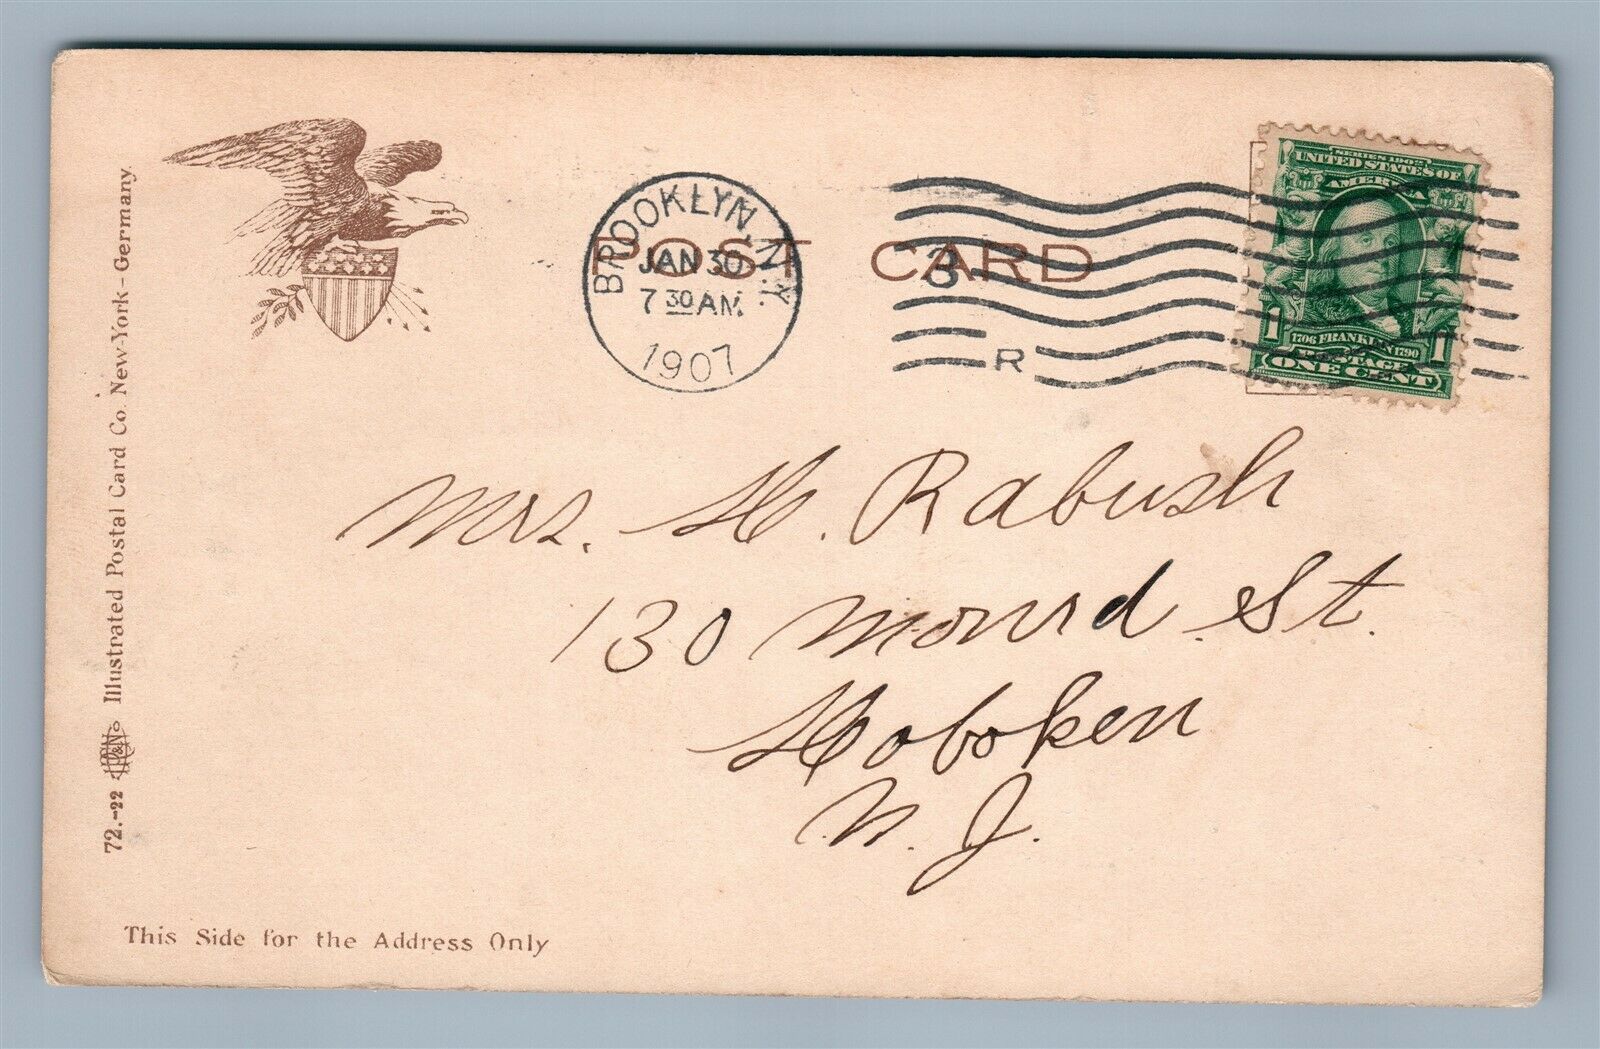 SERIES 1902
UNITED STATES OF
AMERICA
BROOKLYN, N.Y.
JAN 30
7 30 AM
1907
POST CARD
3
R
1 1
1706 FRANKLIN 1790
POSTAGE
ONE CENT
Mrs. H. Rabush
130 Monrd St.
Hoboken
N. J.
72.-22 Illustrated Postal Card Co. New-York-Germany.
This Side for the Address Only